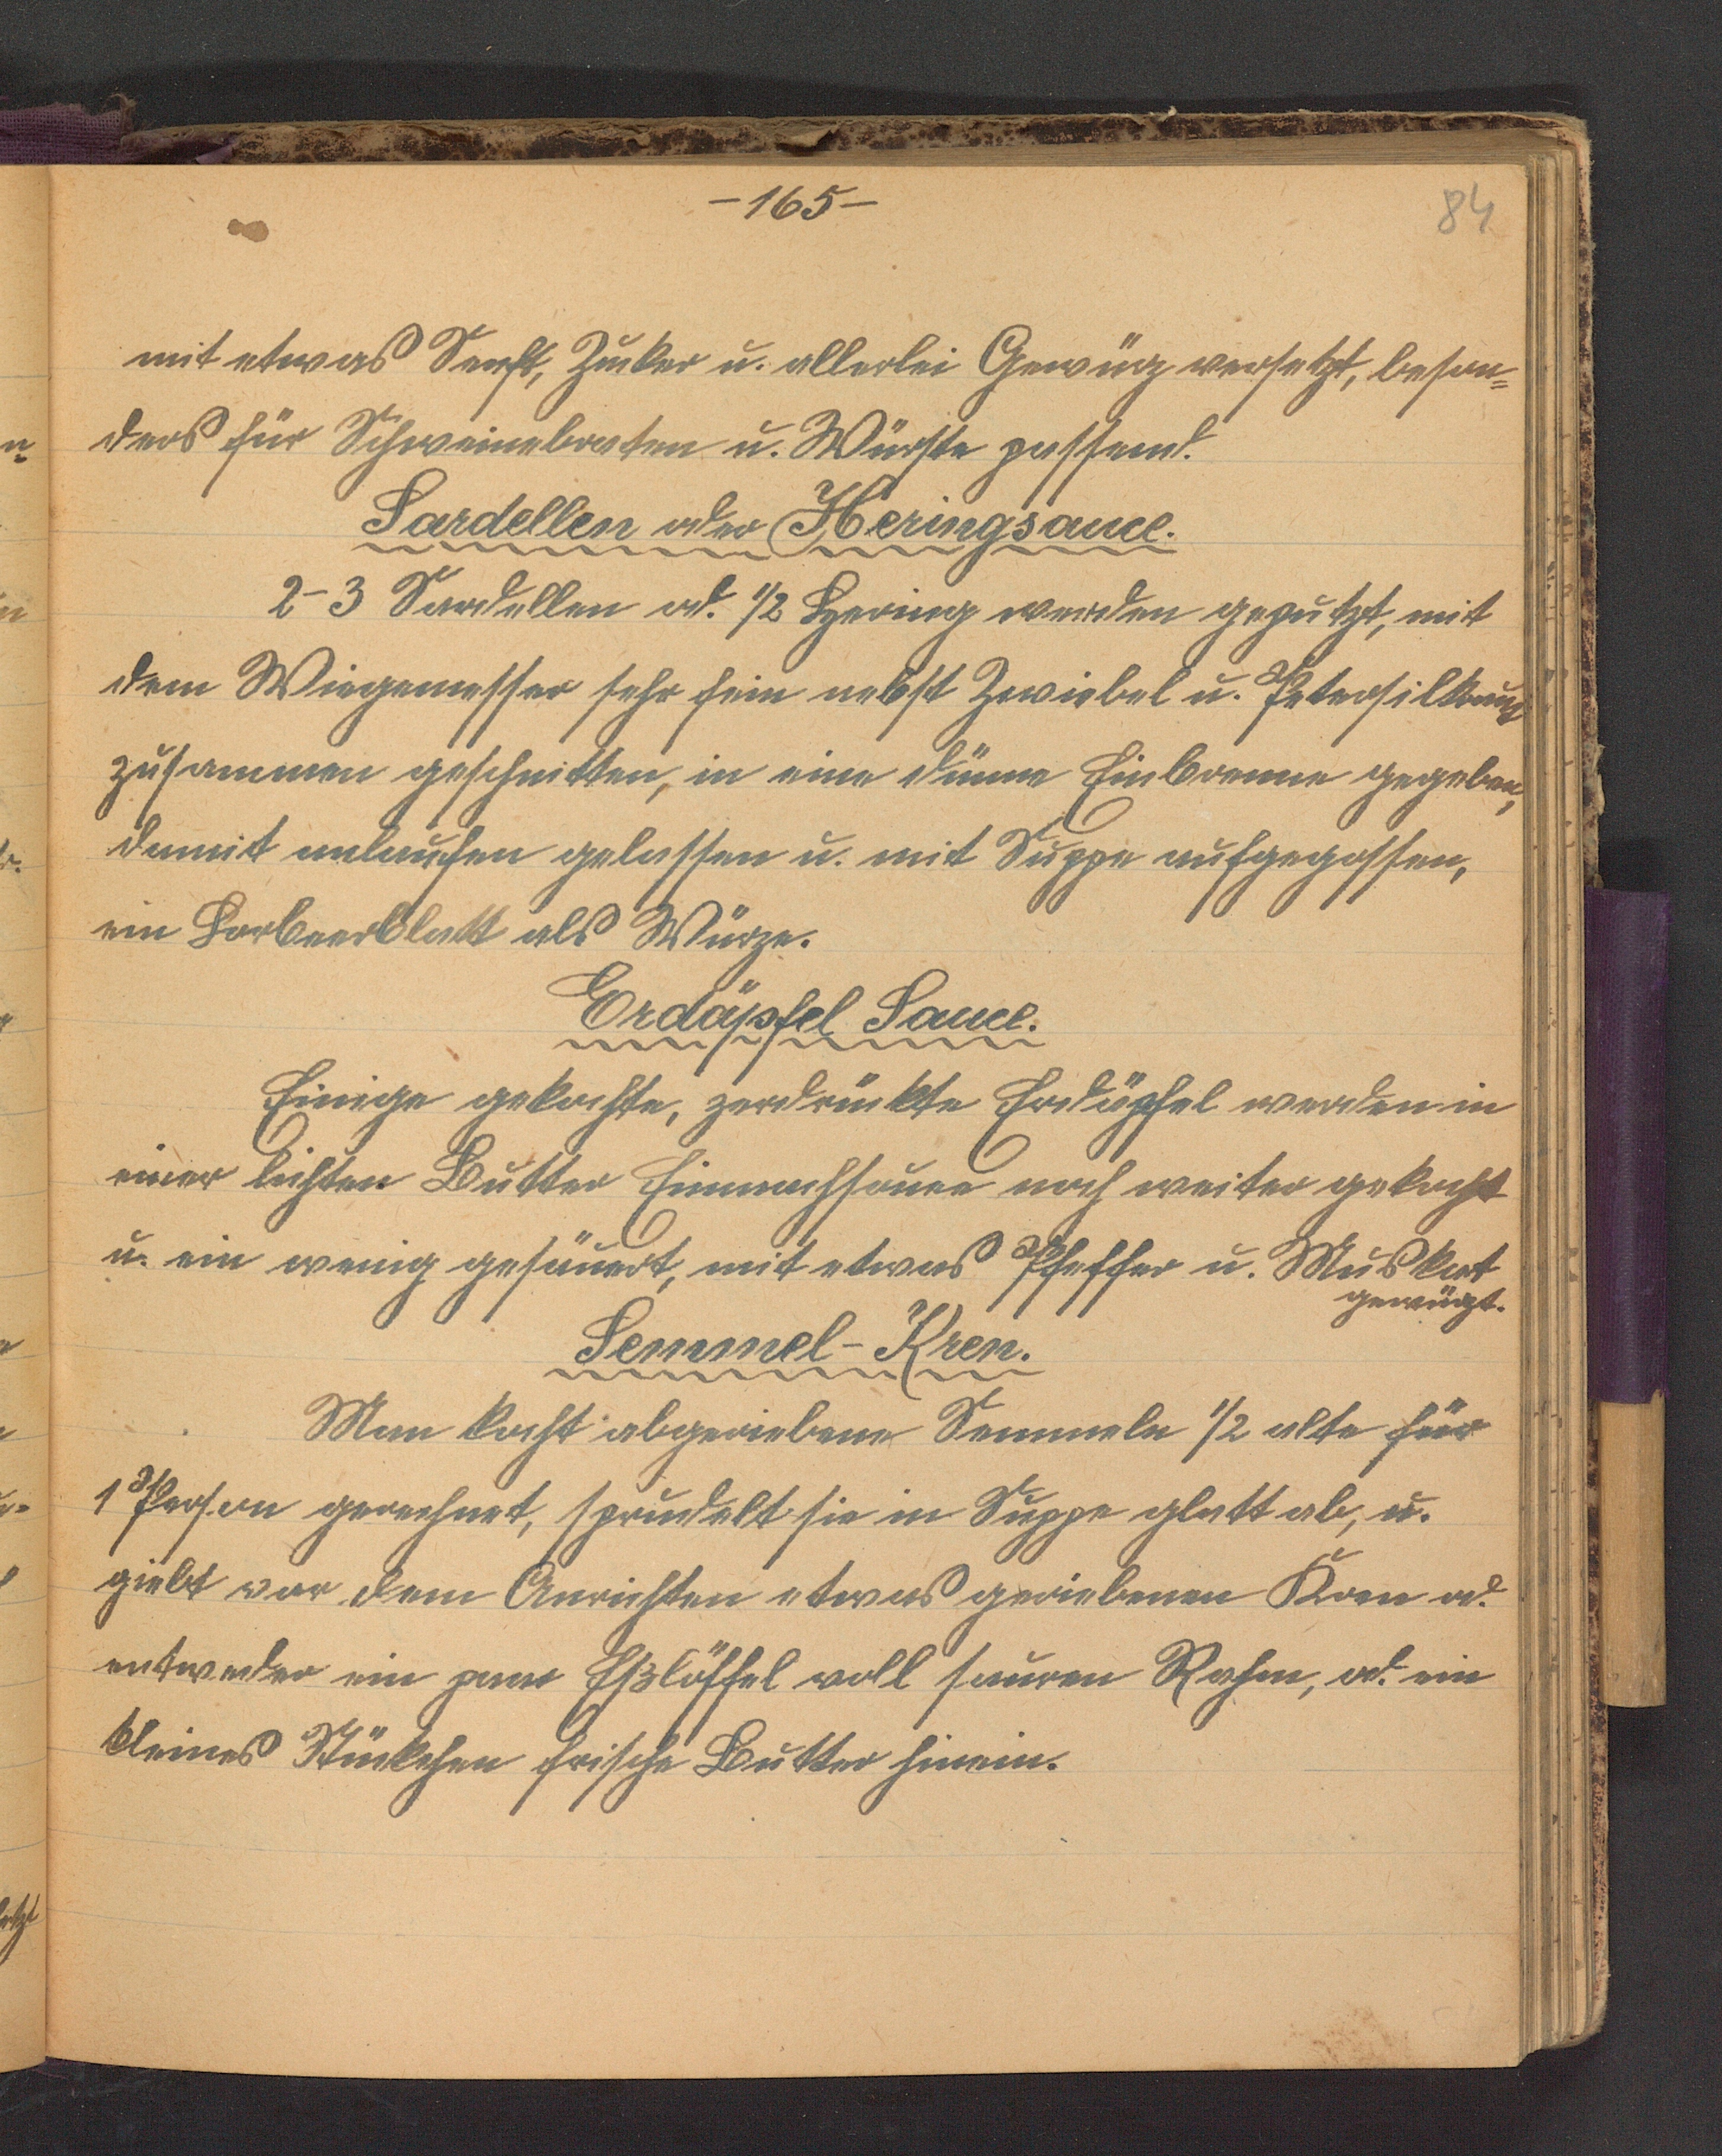 -165-
84
mit etwas Senft, Zucker u. allerlei Gewürz versetzt, beson=
ders für Schweinebraten u. Würste passend.
Sardellen oder Heringsauce.
2-3 Sardellen od. 1/2 Hering werden geputzt, mit
dem Wiegemesser sehr fein nebst Zwiebel u. Petersilkraut
zusammen geschnitten, in eine dünne Einbrenne gegeben,
damit anlaufen gelassen u. mit Suppe aufgegossen,
ein Lorbeerblatt als Würze.
Erdäpfel Sauce.
Einige gekochte, zerdrückte Erdäpfel werden in
einer lichten Butter Einmachsauce noch weiter gekocht
u. ein wenig gesäuert, mit etwas Pfeffer u. Muskat
gewürzt.
Semmel-Kren.
Man kocht abgeriebene Semmeln 1/2 alte für
1 Person gerechnet, sprudelt sie in Suppe glatt ab, u.
giebt vor dem Anrichten etwas geriebenen Kren od.
entweder ein paar Eßlöffel voll sauren Rahm, od. ein
kleines Stückchen frische Butter hinein.